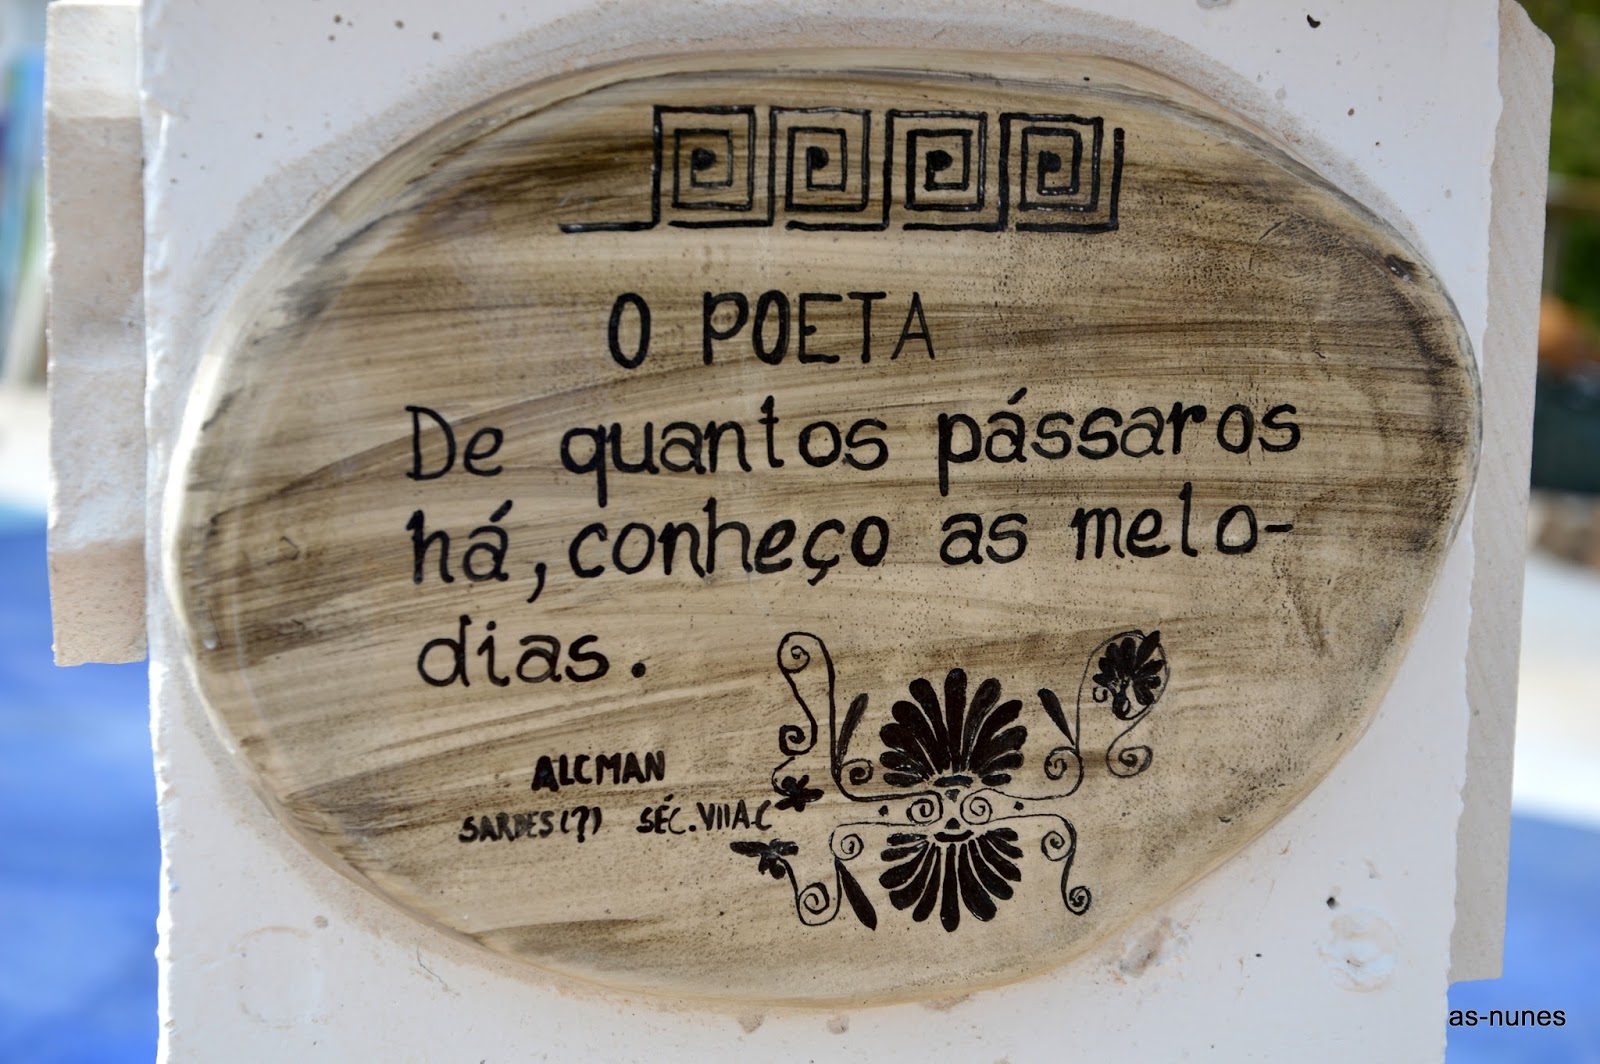 O POETA
De quantos pássaros
há, conheço as melo-
dias.
ALCMAN
SARDES(?) SÉC. VII A.C
as-nunes